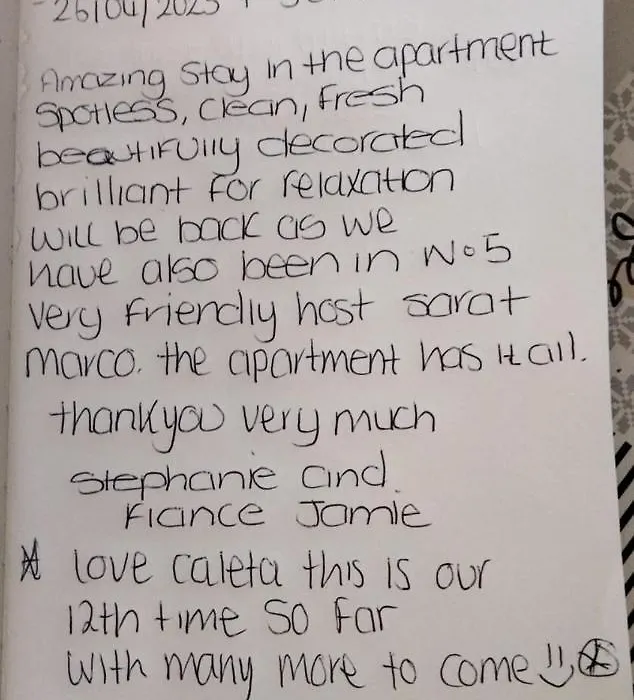 - 26/04/2023
Amazing stay in the apartment
Spotless, Clean, Fresh
beautifully decorated
brilliant for relaxation
will be back as we
have also been in No 5
Very Friendly host Sara +
Marco. the apartment has it all.
thankyou very much
Stephanie and
Fiance Jamie
* love caleta this is our
12th time so far
with many more to come